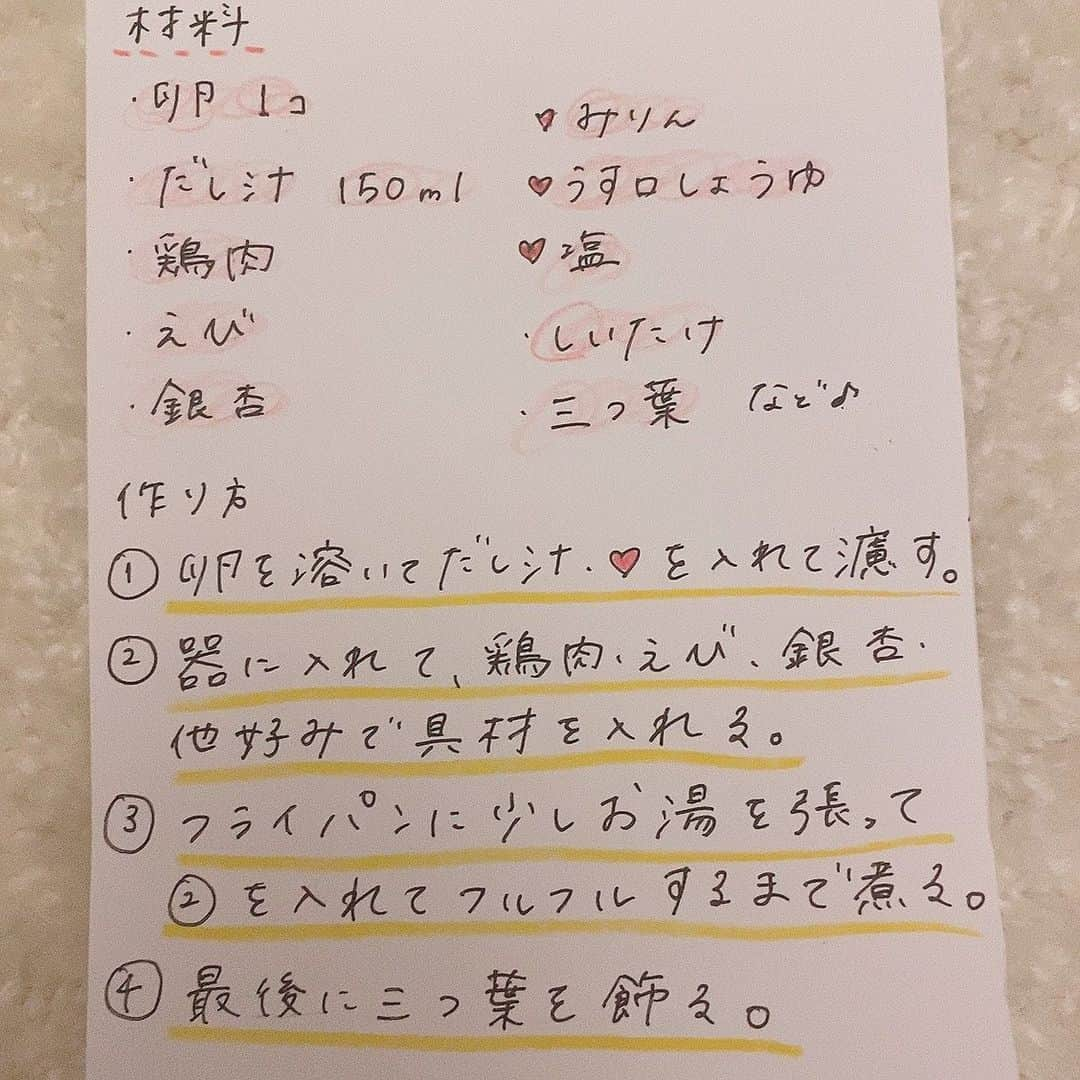 材料
・卵 1コ
・だし汁 150ml
・鶏肉
・えび
・銀杏
♥みりん
♥うす口しょうゆ
♥塩
・しいたけ
・三つ葉 など♪
作り方
① 卵を溶いてだし汁、♥を入れて濾す。
② 器に入れて、鶏肉、えび、銀杏、
他好みで具材を入れる。
③ フライパンに少しお湯を張って
②を入れてフルフルするまで煮る。
④ 最後に三つ葉を飾る。